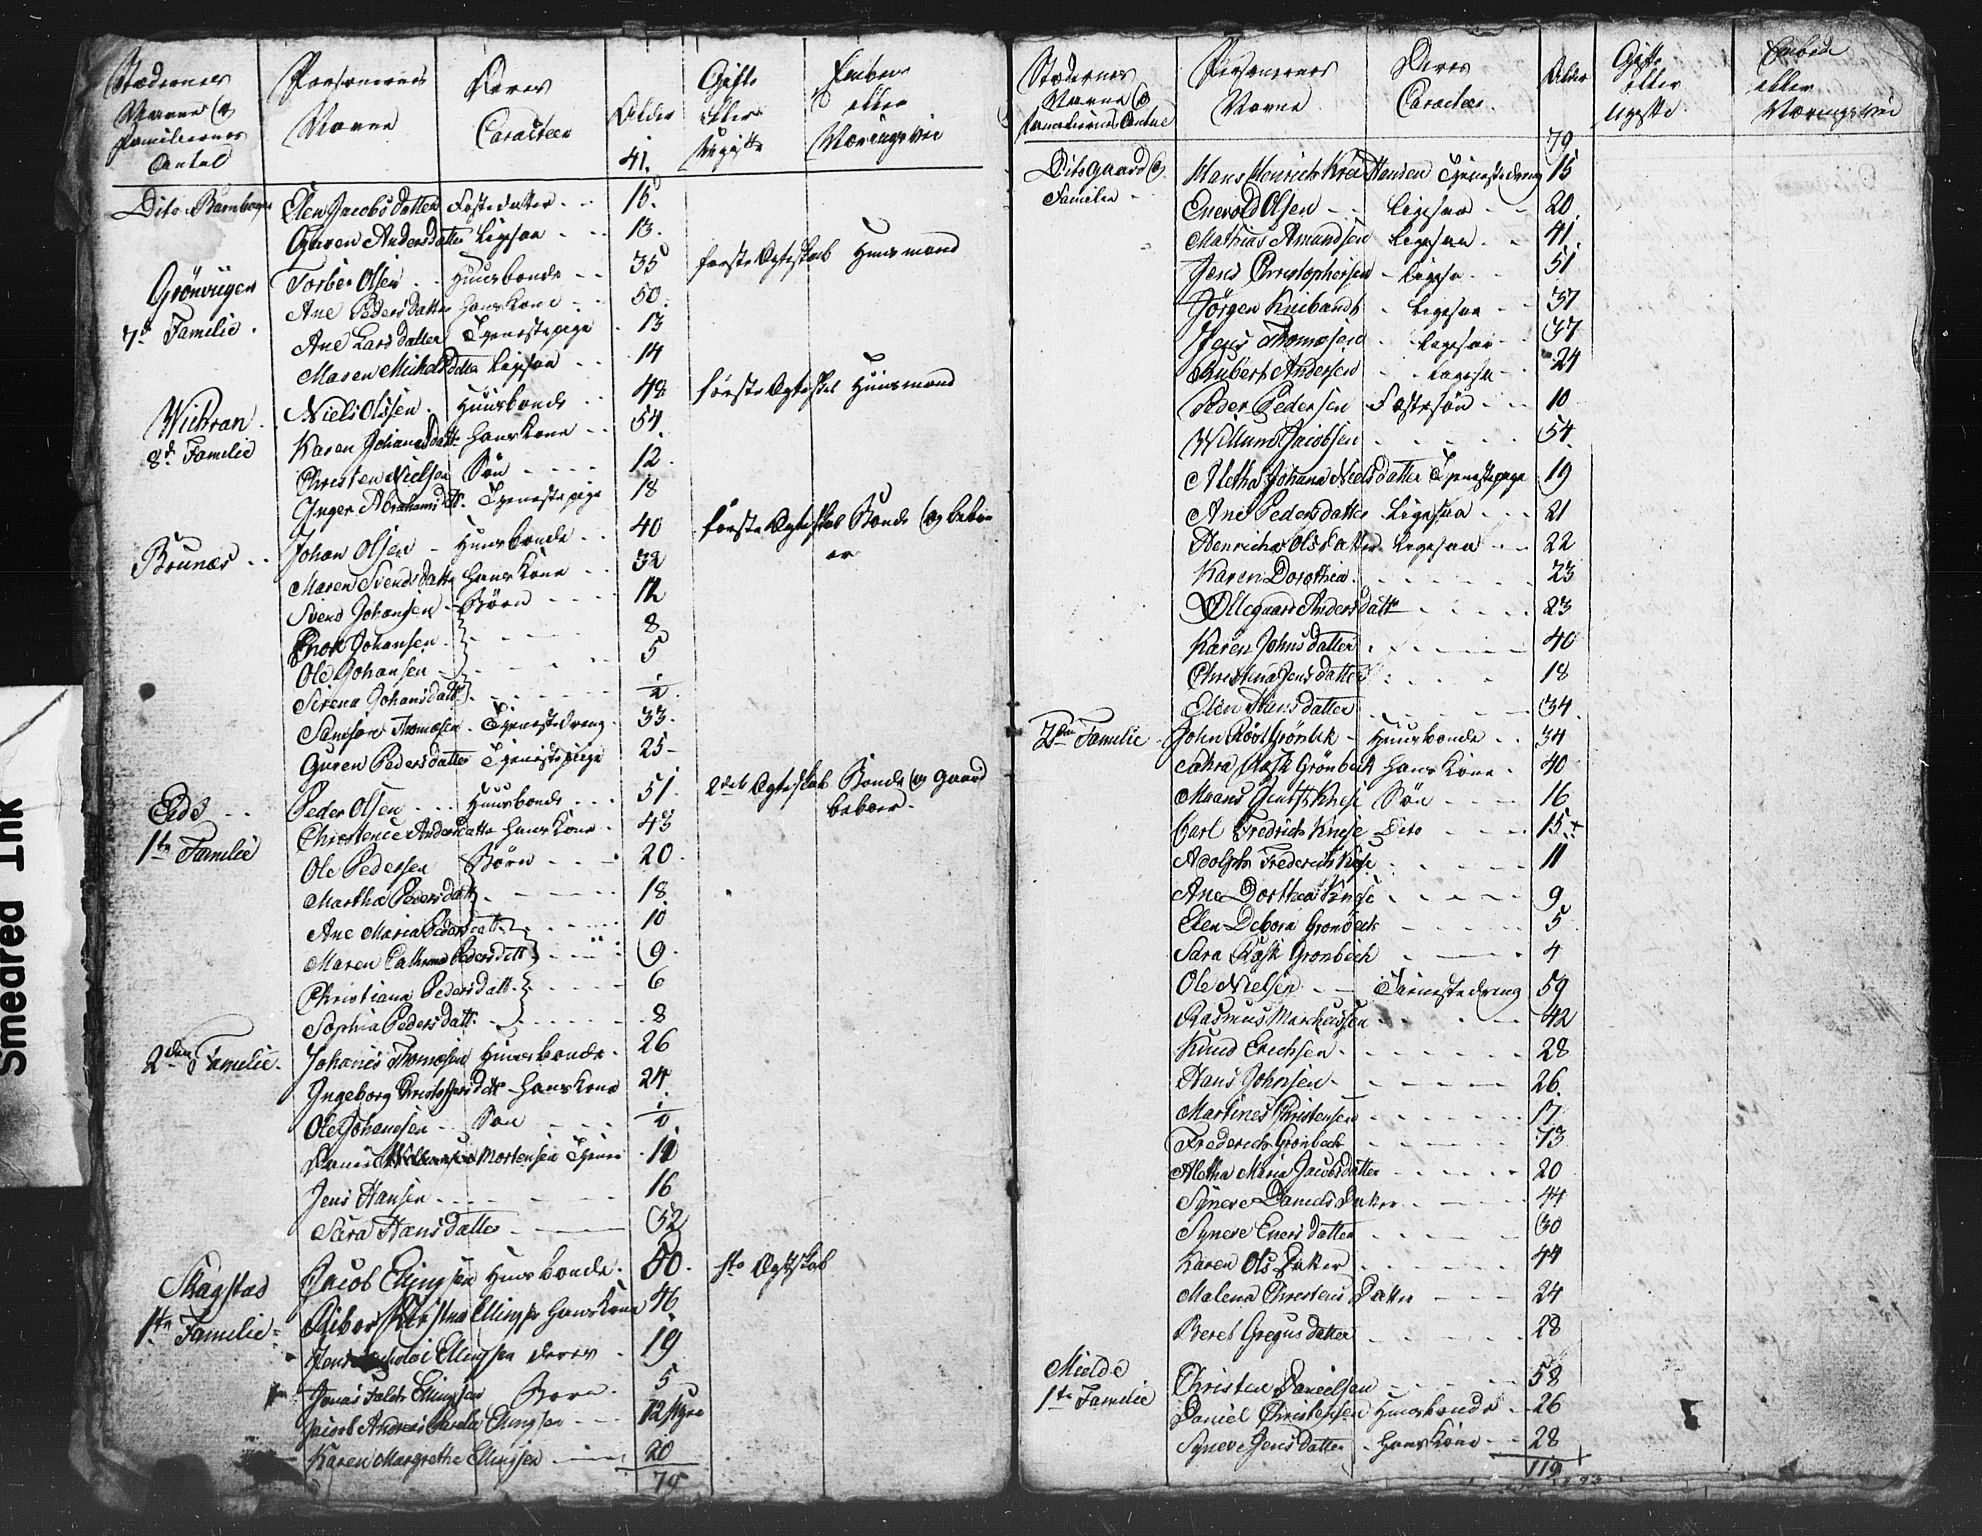 Smeared Ink
Stædernes Navne og Familiernes Antal | Personernes Navne | Deres Caracteer | Alder | Gifte eller Ugifte | Embede eller Næringsvei
41.
Dito Elen Jacobsdatter Fostedatter 15.
Guren Andersdatter Ligesaa 13.
Grönviigen Torber Olsen Huusbonde 35 første Ægteskab Huusmand
Ane Pedersdatter hans Kone 50.
7de Familie. Ane Larsdatter Tjenestepige 13
Maren Michelsdatter Ligesaa 14
Wichran Niels Olssen Huusbonde 48 første Ægteskab Huusmand
8de Familie Karen Johanesdatter hans Kone 54.
Christen Nielsen Søn 12.
Inger Abrahamsdatt. Tjenestepige 18
Brunæs Johan Olsen Huusbonde 40 første Ægteskab Bonde og beboer
Maren Svendsdatter hans Kone 32
Svend Johansen Børn 12
Enok Johansen 8
Ole Johansen 5
Sirena Johansdatt. 1/2.
Samson Thomæsen Tjenestedreng 33.
Guren Pedersdatter Tjenestepiige 25
Eide Peder Olsen Huusbonde 51. 2det Ægteskab Bonde og Gaard beboer.
1te Familie Christence Andersdatter hans Kone 43
Ole Pedersen Børn 20.
Martha Pedersdatt. 18.
Ane Maria Pedersdatt. 10
Maren Cathrina Pedersdatt. 9.
Christiana Pedersdatt. 6
Sophia Pedersdatt. 8
2den Familie. Johanes Thomæsen Huusbonde 26
Ingeborg Christophersdatt. hans Kone 24.
Ole Johansen Søn
Mortensen
Jens Hansen 16
Sara Hansdatter 52
Skagstad Jacob Ellingsen Huusbonde. 50. 1te Ægteskab
1te Familie Ellingsen hans Kone 46
Ellingsen deres 19
Jonas Falch Ellingsen Børn 5
Jacob Andreas Ellingsen
Karen Margrethe Ellingsen 20
Stædernes Navne og Familiernes Antal | Personernes Navne | Deres Caracteer. | Alder | Gifte eller ugifte. | Embede eller Næringsvei
79
Dito Gaard og Familie Hans Henrich Hansen Tjenestedreng 15
Enevold Olsen Ligesaa 20
Mathias Amundsen Ligesaa 41.
Jens Christophersen Ligesa 51
Jörgen Ligesaa 37
Jens Thomæsen Ligesaa 37
Rubert Andersen Ligesa 24
Peder Pedersen Fostesön 10
Willum Jacobsen 54.
Aletha Johana Nielsdatter Tjenestepige 19
Ane Pedersdatter Ligesaa 21
Henricha Olsdatter Ligesaa 22
Karen Dorothea. 23
Ollegaard Andersdatter 23
Karen Johnsdatter 40
Christina Jensdatter 18
Elen Hansdatter 34.
2den Familie John Grönbek Huusbonde 34
Sahra Röst Grönbech hans Kone 40
Knise Søn 16
Carl Fredrich Knise Dito 15
Adolph Frederich Knise 11
Ane Dorthea Knise 9
Elen Debora Gronbech 5
Sara Röst Gronbech 4
Ole Nielsen Tienestedreng 59
Rasmus Markussen 42
Knud Erichsen 28
Hans Johnsen 26
Martines Christensen 17
Frederich Gronbech 73
Aletha Maria Jacobsdatter 20
Synere Daniels Datter 44
Synere Enersdatter 30
Karen Ols Datter 44
Malena Christens Datter 24
Beret Gregusdatter 28
Mielde Christen Danielsen 58
1te Familie Daniel Christensen Huusbonde 26
Synere Jensdatter hans Kone 28
119